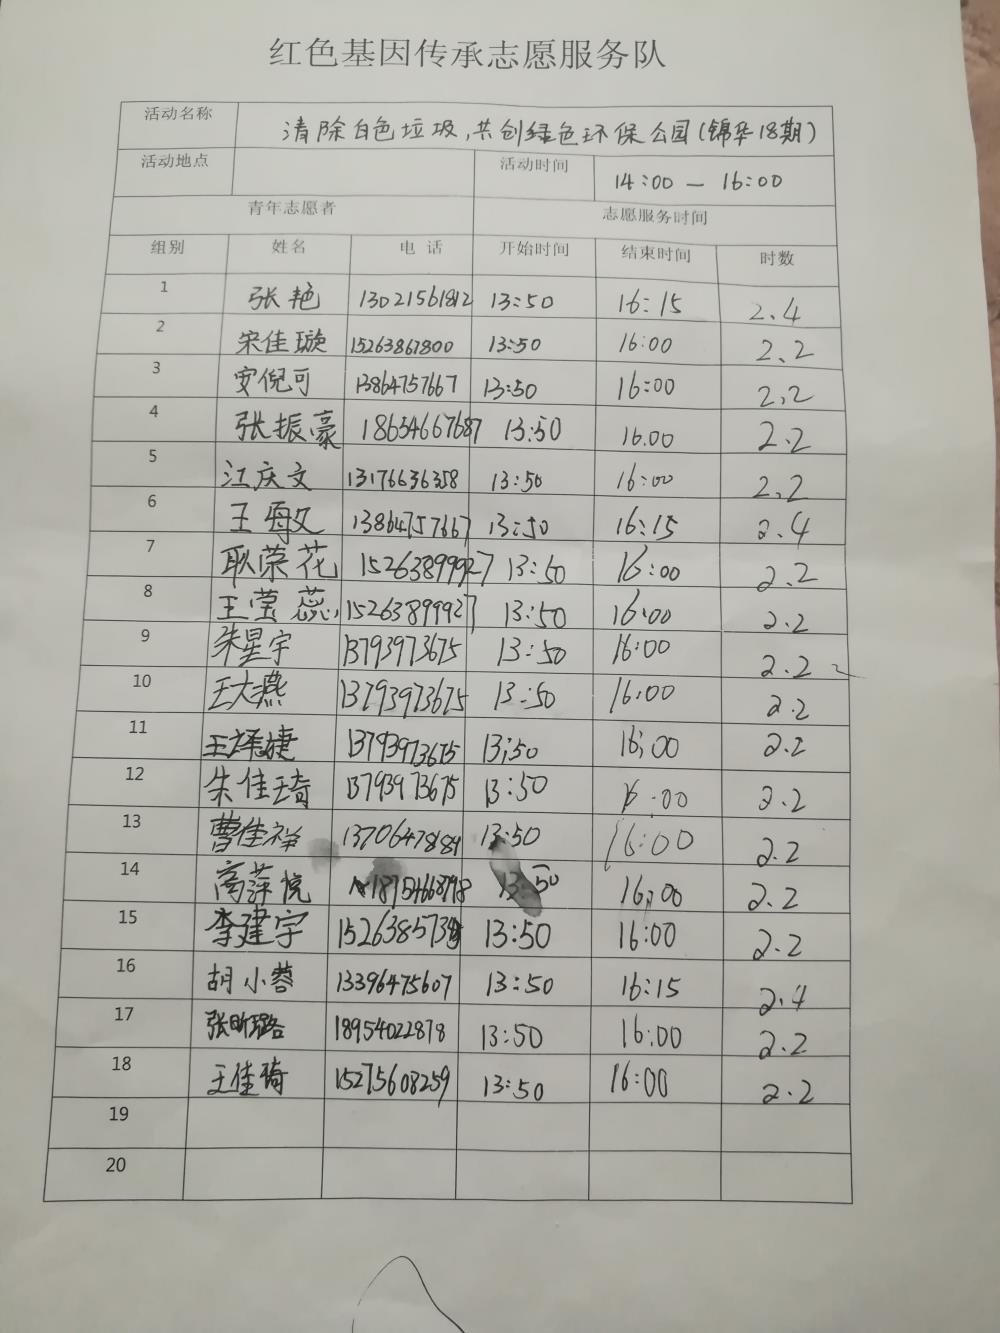 红色基因传承志愿服务队
活动名称 清除白色垃圾,共创绿色环保公园(锦华18期)
活动地点 活动时间 14:00 — 16:00
青年志愿者 志愿服务时间
组别 姓名 电话 开始时间 结束时间 时数
1 张艳 13021561812 13:50 16:15 2.4
2 宋佳璇 15263861800 13:50 16:00 2.2
3 安倪可 13864757667 13:50 16:00 2.2
4 张振豪 18654667687 13:50 16.00 2.2
5 江庆文 13176636358 13:50 16:00 2.2
6 王 13864757667 13:50 16:15 2.4
7 耿荣花 15263899927 13:50 16:00 2.2
8 王莹蕊 15263899927 13:50 16:00 2.2
9 朱星宇 13793973675 13:50 16:00 2.2
10 王大燕 13793973675 13:50 16:00 2.2
11 王泽婕 13793973675 13:50 16:00 2.2
12 朱佳琦 13793973675 13:50 16:00 2.2
13 曹佳祥 13706478184 13:50 16:00 2.2
14 高萍悦 18754668798 13:50 16:00 2.2
15 李建宇 13:50 16:00 2.2
16 胡小蓉 13396475607 13:50 16:15 2.4
17 张昕璐 18954022878 13:50 16:00 2.2
18 王佳琦 15275608259 13:50 16:00 2.2
19
20